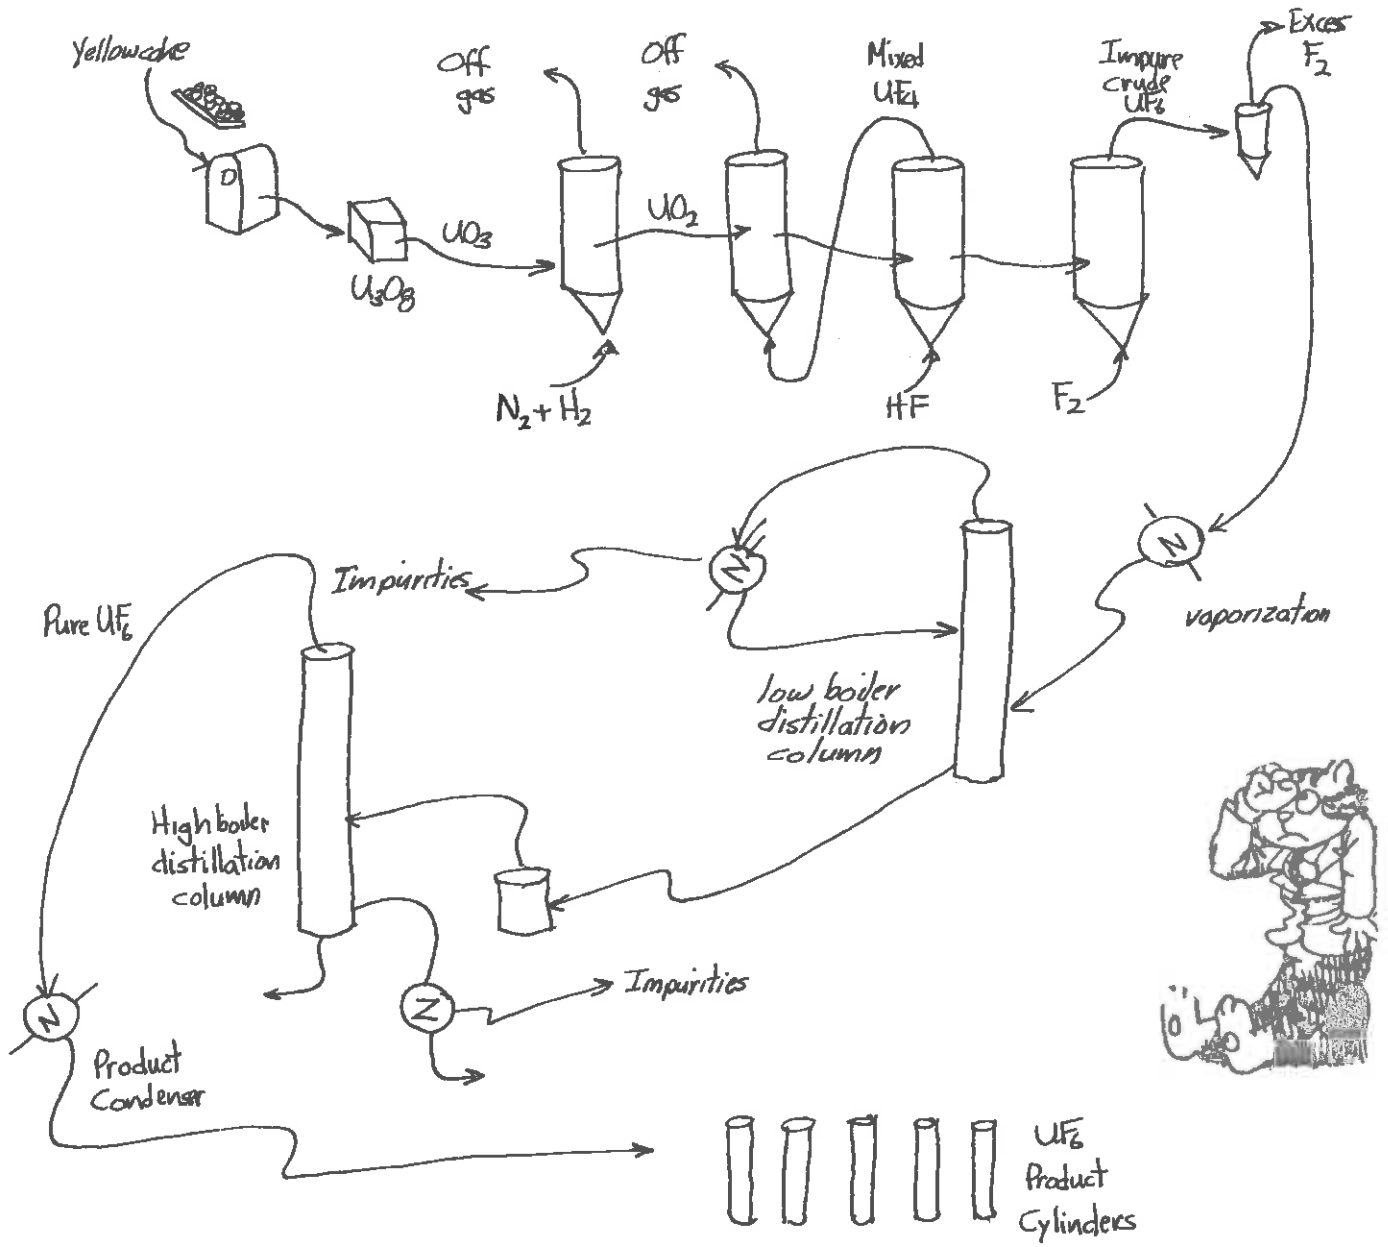 Yellowcake
Off
gas
Off
gas
Mixed
UF4
Impure
crude
UF6
Exces
F2
D
U3O8
UO3
UO2
N2 + H2
HF
F2
N
vaporization
N
Impurities
low boiler
distillation
column
Pure UF6
High boiler
distillation
column
N
Impurities
N
Product
Condenser
UF6
Product
Cylinders